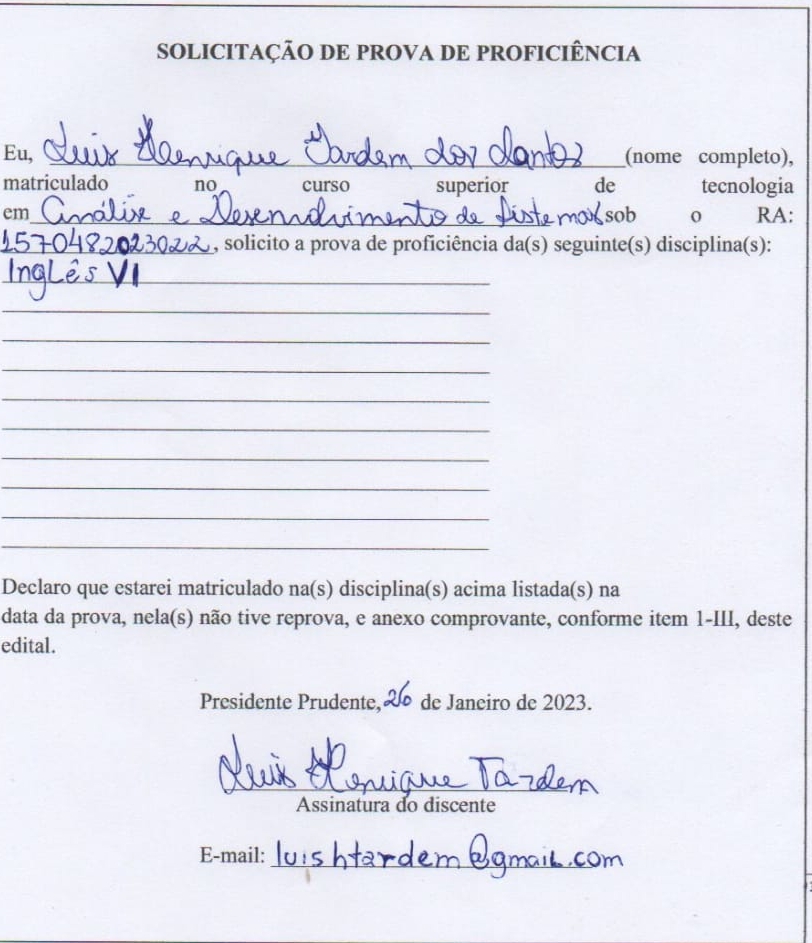 SOLICITAÇÃO DE PROVA DE PROFICIÊNCIA
Eu, Luis Henrique Tardem dos Santos (nome completo),
matriculado no curso superior de tecnologia
em Análise e Desenvolvimento de Sistemas sob o RA:
1570482023022, solicito a prova de proficiência da(s) seguinte(s) disciplina(s):
Inglês VI
Declaro que estarei matriculado na(s) disciplina(s) acima listada(s) na
data da prova, nela(s) não tive reprova, e anexo comprovante, conforme item 1-III, deste
edital.
Presidente Prudente, 26 de Janeiro de 2023.
Luis Henrique Tardem
Assinatura do discente
E-mail: luishtardem@gmail.com